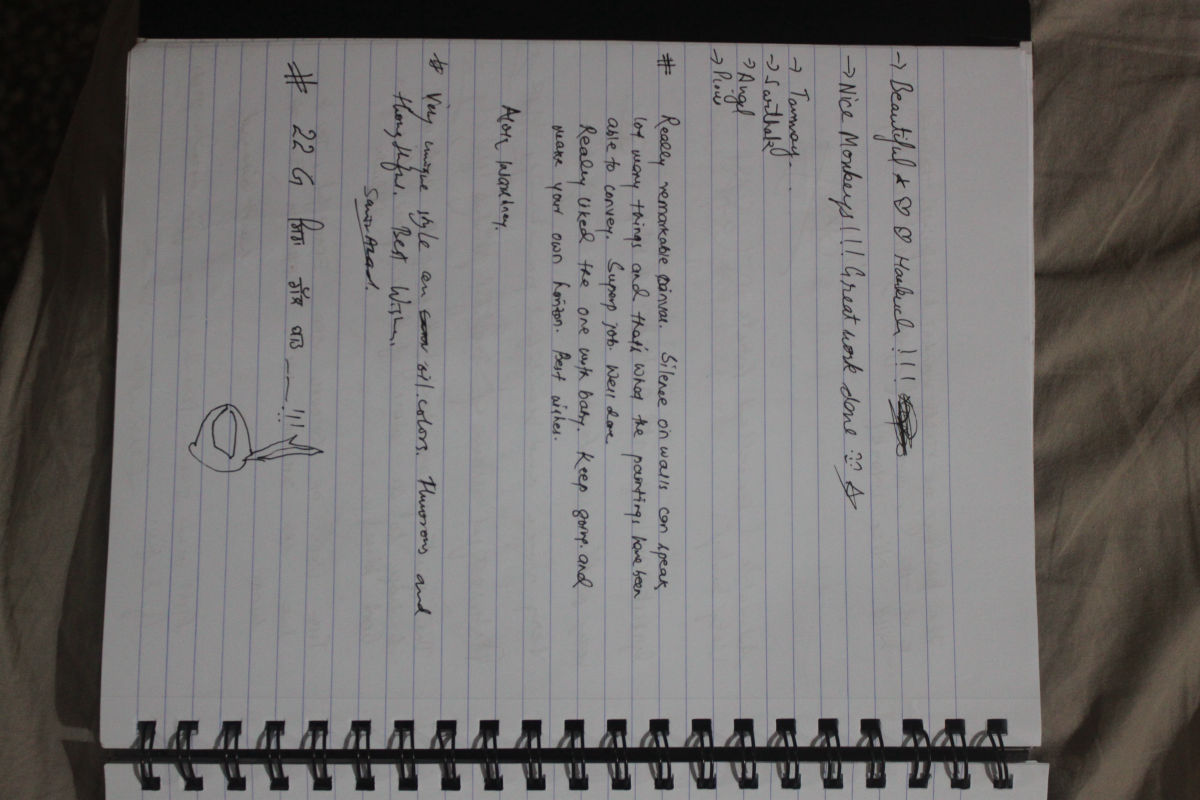 → Beautiful ★ ♡ ♡ !!!
→ Nice Monkeys!!! Great work done
→ Tanmay.
→ Sarthak
→ Angel
→ Piou
# Really remarkable canvas. Silence on walls can speak
lot many things and that's what the paintings have been
able to convey. Superp job. Well done
Really liked the one with baby. Keep going. and
make your own horizon. Best wishes.
Very unique style on oil.colors. Humorous and
thoughtful. Best Wishes.
# 22 G !!!